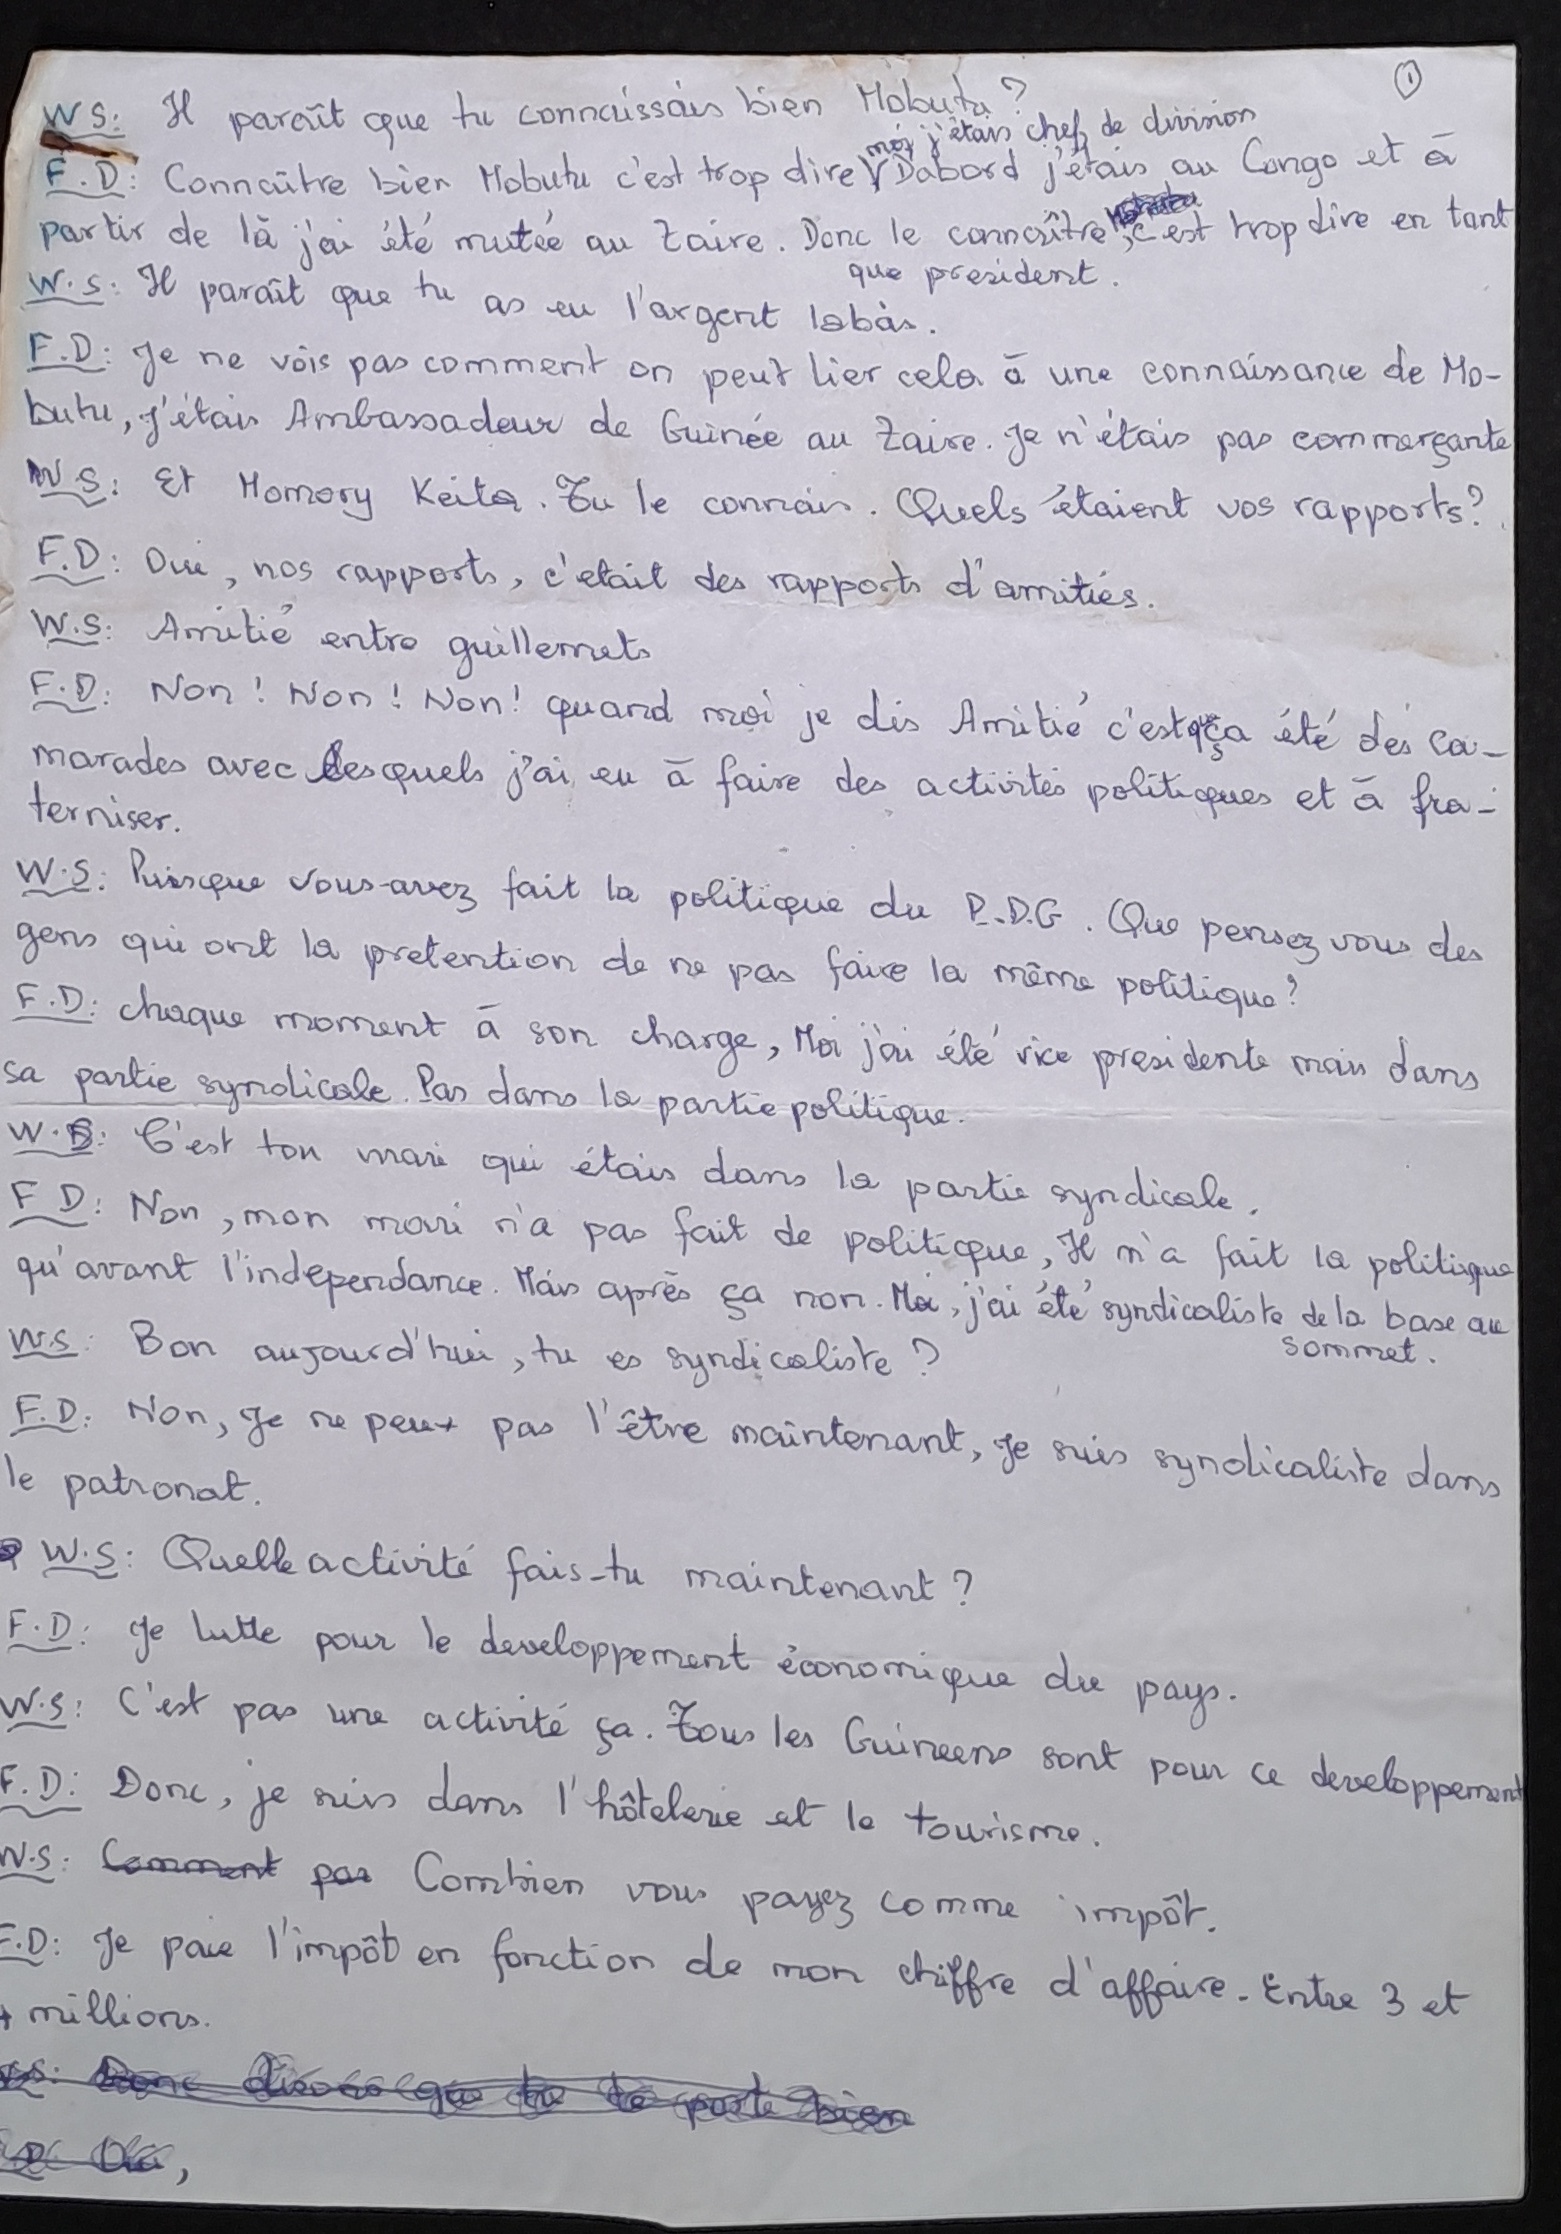 ①
W S: Il paraît que tu connaissais bien Mobutu?
moi j'étais chef de division
F.D: Connaître bien Mobutu c'est trop dire √ Dabord j'étais au Congo et à
partir de là j'ai été mutée au Zaire. Donc le connaître, c'est trop dire en tant
que president.
W.S: Il paraît que tu as eu l'argent labàs.
F.D: Je ne vois pas comment on peut lier cela à une connaissance de Mo-
butu, j'étais Ambassadeur de Guinée au Zaire. Je n'étais pas commerçante
W.S: Et Momory Keita. Tu le connais. Quels étaient vos rapports?
F.D: Oui, nos rapports, c'etait des rapports d'amitiés.
W.S: Amitié entre guillemets
F.D: Non! Non! Non! quand moi je dis Amitié c'est que ça été des ca-
marades avec lesquels j'ai eu à faire des activités politiques et à fra-
terniser.
W.S: Puisque vous-avez fait la politique du P.D.G. Que pensez vous des
gens qui ont la pretention de ne pas faire la même politique?
F.D: chaque moment à son charge, Moi j'ai été vice presidente mais dans
sa partie syndicale. Pas dans la partie politique.
W.S: C'est ton mari qui étais dans la partie syndicale.
F D: Non, mon mari n'a pas fait de politique, Il n'a fait la politique
qu'avant l'independance. Mais après ça non. Moi, j'ai été syndicaliste de la base au
sommet.
W.S: Bon aujourd'hui, tu es syndicaliste?
F.D: Non, Je ne peux pas l'être maintenant, Je suis syndicaliste dans
le patronat.
W.S: Quelle activité fais-tu maintenant?
F.D: Je lutte pour le developpement économique du pays.
W.S: C'est pas une activité ça. Tous les Guineens sont pour ce developpement
F.D: Donc, je suis dans l'hôtelerie et le tourisme.
W.S: Comment par Combien vous payez comme impôt.
F.D: Je paie l'impôt en fonction de mon chiffre d'affaire. Entre 3 et
4 millions.
W.S: Donc disons que tu te porte bien